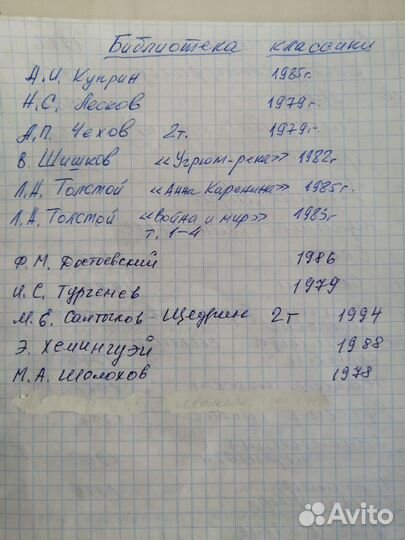 Библиотека классики
А.И. Куприн 1985г.
Н.С. Лесков 1979г.
А.П. Чехов 2т. 1979г.
В. Шишков «Угрюм-река» 1982г
Л.Н. Толстой «Анна Каренина» 1985г.
Л.Н. Толстой «Война и мир» 1983г
т. 1-4
Ф.М. Достоевский 1986
И.С. Тургенев 1979
М.Е. Салтыков-Щедрин 2т 1994
Э. Хемингуэй 1988
М.А. Шолохов 1978
Avito